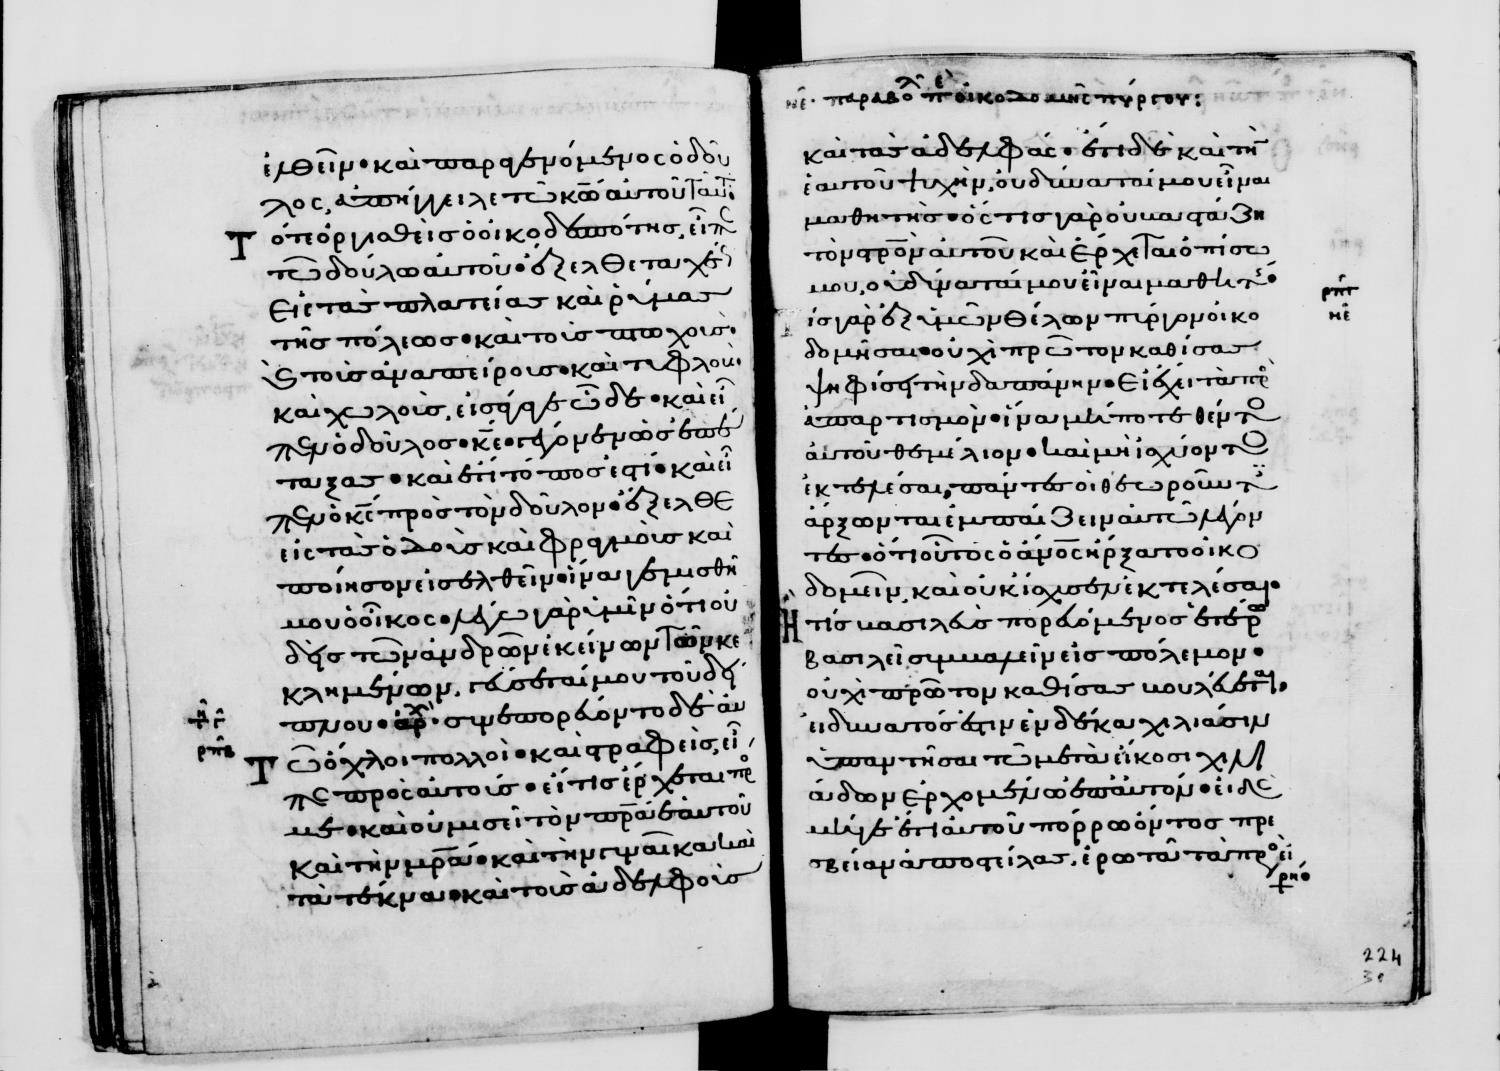 ελθεῖν· καὶ παραγενόμενος ὁ δοῦ
λος, ἀπήγγειλε τῶ κῶ αὐτοῦ ταῦτ·
Τότε ὀργισθεὶς ὁ οἰκοδεσπότης, εἶπε
τῶ δούλω αὐτοῦ· ἔξελθε ταχέ
εἰς τὰς πλατείας καὶ ῥύμας
τῆς πόλεως· καὶ τοὺς πτωχοὺς·
ϗ τοὺς ἀναπείρους· καὶ τυφλοὺς·
καὶ χωλοὺς, εἰσάγαγε ὧδε· καὶ εἶ
πεν ὁ δοῦλος· κε· γέγονεν ὡς ἐπέ
ταξας· καὶ ἔτι τόπος ἐστί· καὶ εἶ
πεν ὁ κς πρὸς τὸν δοῦλον· ἔξελθε
εἰς τὰς ὁδοὺς καὶ φραγμοὺς καὶ
ποίησον εἰσελθεῖν· ἵνα γεμισθῆ
μου ὁ οἶκος· λέγω γὰρ ὑμῖν ὅτι οὐ
δεὶς τῶν ἀνδρῶν ἐκείνων τῶν κε
κλημένων, γεύσεταί μου τοῦ δεί
πνου· ἀρχ· συνεπορεύοντο δὲ αὐ
ρπβ
Τῶ ὄχλοι πολλοί· καὶ στραφεὶς, εἶ
πε πρὸς αὐτούς· εἴ τις ἔρχεται πρός
με· καὶ οὐ μισεῖ τὸν πρα ἑαυτοῦ
καὶ τὴν μρα· καὶ τὴν γυναῖκα· καὶ
τὰ τέκνα· καὶ τοὺς ἀδελφοὺς
νε· παραβολ πε οἰκοδομῆς πύργου:
καὶ τὰς ἀδελφάς· ἔτι δὲ καὶ τὴν
ἑαυτοῦ ψυχήν, οὐ δύναταί μου εἶναι
μαθητής· ὅστις γὰρ οὐ βαστάζει
τὸν στρον αὐτοῦ καὶ ἔρχεται ὀπίσω
μου, οὐ δύναταί μου εἶναι μαθητής·
ρπγ
νε
ίς γὰρ ἐξ ὑμῶν θέλων πύργον οἰκο
δομῆσαι· οὐχὶ πρῶτον καθίσας
ψηφίζει τὴν δαπάνην· εἰ ἔχει τὰ πρὸς
ἀπαρτισμόν· ἵνα μήποτε θέντος
αὐτοῦ θεμέλιον· καὶ μὴ ἰσχύοντος
ἐκτελέσαι, πάντες οἱ θεωροῦντες
ἄρξωνται ἐμπαίζειν αὐτῶ λέγον
τες· ὅτι οὗτος ὁ ἄνος ἤρξατο οἰκο
δομεῖν, καὶ οὐκ ἴσχυσεν ἐκτελέσαι·
Ἢ τίς βασιλεὺς πορευόμενος ἑτέρω
βασιλεῖ συμβαλεῖν εἰς πόλεμον·
οὐχὶ πρῶτον καθίσας βουλεύεται,
εἰ δυνατός ἐστιν ἐν δέκα χιλιάσιν
ἀπαντῆσαι τῶ μετὰ εἴκοσι χιλι
άδων ἐρχομένω ἐπ' αὐτόν· εἰ δὲ
μήγε ἔτι αὐτοῦ πόρρω ὄντος πρε
σβείαν ἀποστείλας, ἐρωτᾶ τὰ πρὸς εἰ
ρήν·
224